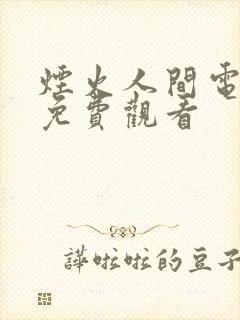 煙火人間電
免費觀看
譁啦啦的豆子